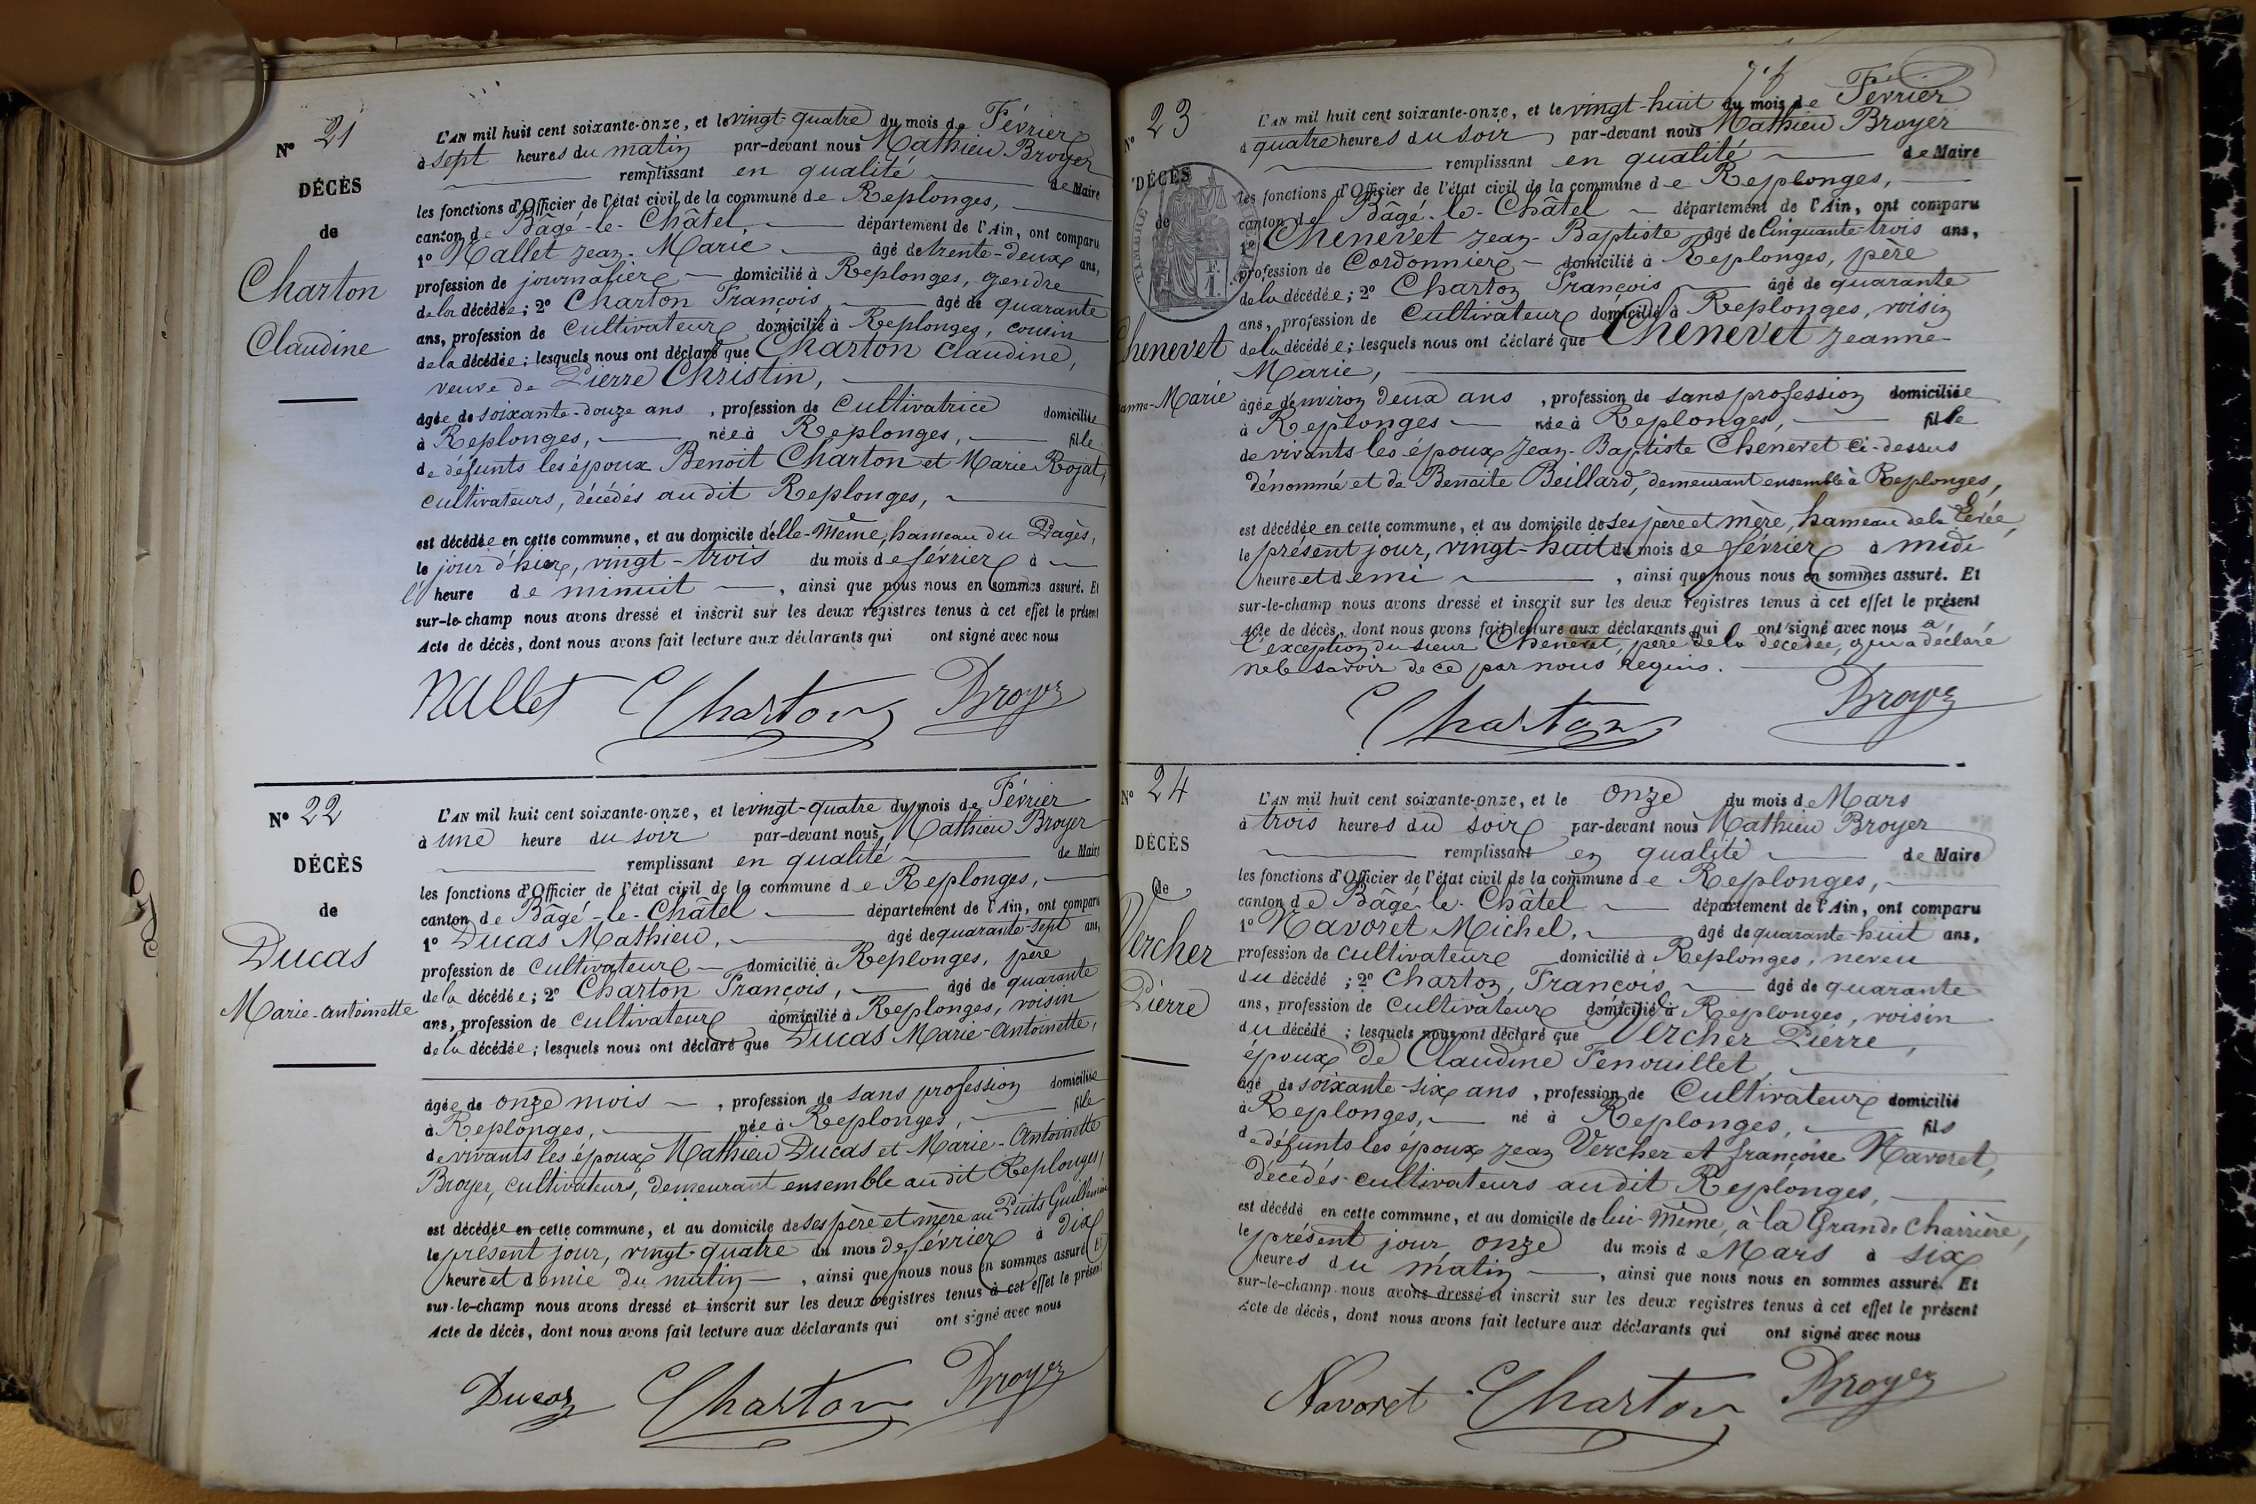 N° 21
DÉCÈS
de
Charton
Claudine
L'AN mil huit cent soixante-onze, et le vingt-quatre du mois de Février
à sept heures du matin par-devant nous Mathieu Broyer
remplissant en qualité de Maire
les fonctions d'Officier de l'état civil de la commune de Replonges,
canton de Bâgé-le-Châtel département de l'Ain, ont comparu
1° Nallet Jean-Marie âgé de trente-deux ans,
profession de journalier domicilié à Replonges, gendre
de la décédée; 2° Charton François, âgé de quarante
ans, profession de Cultivateur domicilié à Replonges, cousin
de la décédée; lesquels nous ont déclaré que Charton Claudine,
veuve de Pierre Christin,
âgée de soixante-douze ans, profession de Cultivatrice domiciliée
à Replonges, née à Replonges, fille
de défunts les époux Benoit Charton et Marie Rojat,
cultivateurs, décédés audit Replonges,
est décédée en cette commune, et au domicile d'elle-même, hameau du Pagès,
le jour d'hier, vingt-trois du mois de février à
l'heure de minuit, ainsi que nous nous en sommes assuré. Et
sur-le-champ nous avons dressé et inscrit sur les deux registres tenus à cet effet le présent
Acte de décès, dont nous avons fait lecture aux déclarants qui ont signé avec nous
Nallet Charton Broyer
N° 22
DÉCÈS
de
Ducas
Marie-Antoinette
L'AN mil huit cent soixante-onze, et le vingt-quatre du mois de Février
à une heure du soir par-devant nous, Mathieu Broyer
remplissant en qualité de Maire
les fonctions d'Officier de l'état civil de la commune de Replonges,
canton de Bâgé-le-Châtel département de l'Ain, ont comparu
1° Ducas Mathieu, âgé de quarante-sept ans,
profession de Cultivateur domicilié à Replonges, père
de la décédée; 2° Charton François, âgé de quarante
ans, profession de cultivateur domicilié à Replonges, voisin
de la décédée; lesquels nous ont déclaré que Ducas Marie-Antoinette,
âgée de onze mois, profession de sans profession domiciliée
à Replonges, née à Replonges, fille
de vivants les époux Mathieu Ducas et Marie-Antoinette
Broyer, cultivateurs, demeurant ensemble audit Replonges,
est décédée en cette commune, et au domicile de ses père et mère au Puits Guillemin
le présent jour, vingt-quatre du mois de février à dix
heure et demie du matin, ainsi que nous nous en sommes assuré. Et
sur-le-champ nous avons dressé et inscrit sur les deux registres tenus à cet effet le présent
Acte de décès, dont nous avons fait lecture aux déclarants qui ont signé avec nous
Ducas Charton Broyer
N° 23
DÉCÈS
de
Chenevet
Jeanne-Marie
L'AN mil huit cent soixante-onze, et le vingt-huit du mois de Février
à quatre heures du soir par-devant nous Mathieu Broyer
remplissant en qualité de Maire
les fonctions d'Officier de l'état civil de la commune de Replonges,
canton de Bâgé-le-Châtel département de l'Ain, ont comparu
1° Chenevet Jean-Baptiste âgé de Cinquante-trois ans,
profession de Cordonnier domicilié à Replonges, père
de la décédée; 2° Charton François âgé de quarante
ans, profession de Cultivateur domicilié à Replonges, voisin
de la décédée; lesquels nous ont déclaré que Chenevet Jeanne-
Marie,
âgée d'environ deux ans, profession de sans profession domiciliée
à Replonges née à Replonges, fille
de vivants les époux Jean-Baptiste Chenevet ci-dessus
dénommé et de Benoite Beillard, demeurant ensemble à Replonges,
est décédée en cette commune, et au domicile de ses père et mère, hameau de la Levée,
le présent jour, vingt-huit du mois de février à midi
heure et demi, ainsi que nous nous en sommes assuré. Et
sur-le-champ nous avons dressé et inscrit sur les deux registres tenus à cet effet le présent
Acte de décès, dont nous avons fait lecture aux déclarants qui ont signé avec nous à
l'exception du sieur Chenevet, père de la décédée, qui a déclaré
ne le savoir de ce par nous requis.
Charton Broyer
N° 24
DÉCÈS
de
Vercher
Pierre
L'AN mil huit cent soixante-onze, et le onze du mois de Mars
à trois heures du soir par-devant nous Mathieu Broyer
remplissant en qualité de Maire
les fonctions d'Officier de l'état civil de la commune de Replonges,
canton de Bâgé-le-Châtel département de l'Ain, ont comparu
1° Navoret Michel, âgé de quarante-huit ans,
profession de cultivateur domicilié à Replonges, neveu
du décédé; 2° Charton, François âgé de quarante
ans, profession de cultivateur domicilié à Replonges, voisin
du décédé; lesquels nous ont déclaré que Vercher Pierre,
époux de Claudine Fenouillet,
âgé de soixante-six ans, profession de Cultivateur domicilié
à Replonges, né à Replonges, fils
de défunts les époux Jean Vercher et Françoise Navoret,
décédés cultivateurs audit Replonges,
est décédé en cette commune, et au domicile de lui-même, à la Grande Charrière,
le présent jour onze du mois de Mars à six
heures du matin, ainsi que nous nous en sommes assuré. Et
sur-le-champ nous avons dressé et inscrit sur les deux registres tenus à cet effet le présent
Acte de décès, dont nous avons fait lecture aux déclarants qui ont signé avec nous
Navoret Charton Broyer